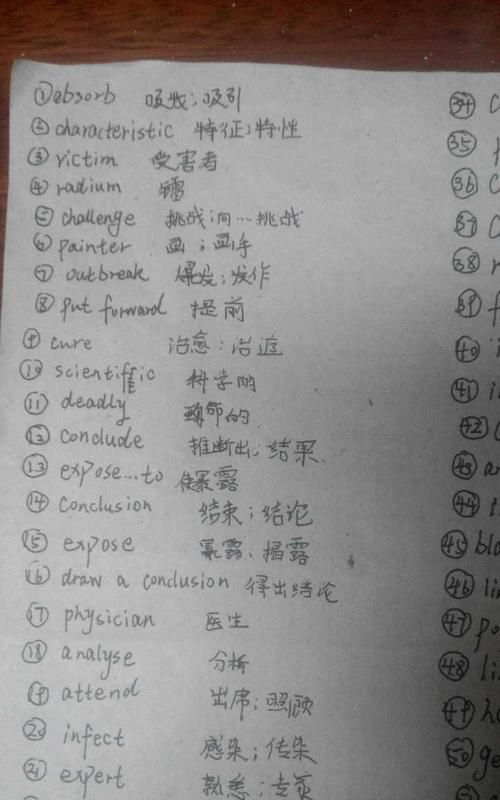 ①absorb 吸收;吸引
②characteristic 特征;特性
③victim 受害者
④radium 镭
⑤challenge 挑战;向…挑战
⑥painter 画;画手
⑦outbreak 爆发;发作
⑧put forward 提前
⑨cure 治愈;治疗
⑩scientific 科学的
⑪deadly 致命的
⑫conclude 推断出;结果
⑬expose...to 使暴露
⑭conclusion 结束;结论
⑮expose 暴露、揭露
⑯draw a conclusion 得出结论
⑰physician 医生
⑱analyse 分析
⑲attend 出席;照顾
⑳infect 感染;传染
㉑expert 熟悉;专
㉞ C
㉟
㊱ C
㊲ C
㊳ r
㊴ f
㊵ i
㊶ i
㊷ C
㊸ a
㊹
㊺ bl
㊻ li
㊼ po
㊽ li
㊾ h
㊿ ge